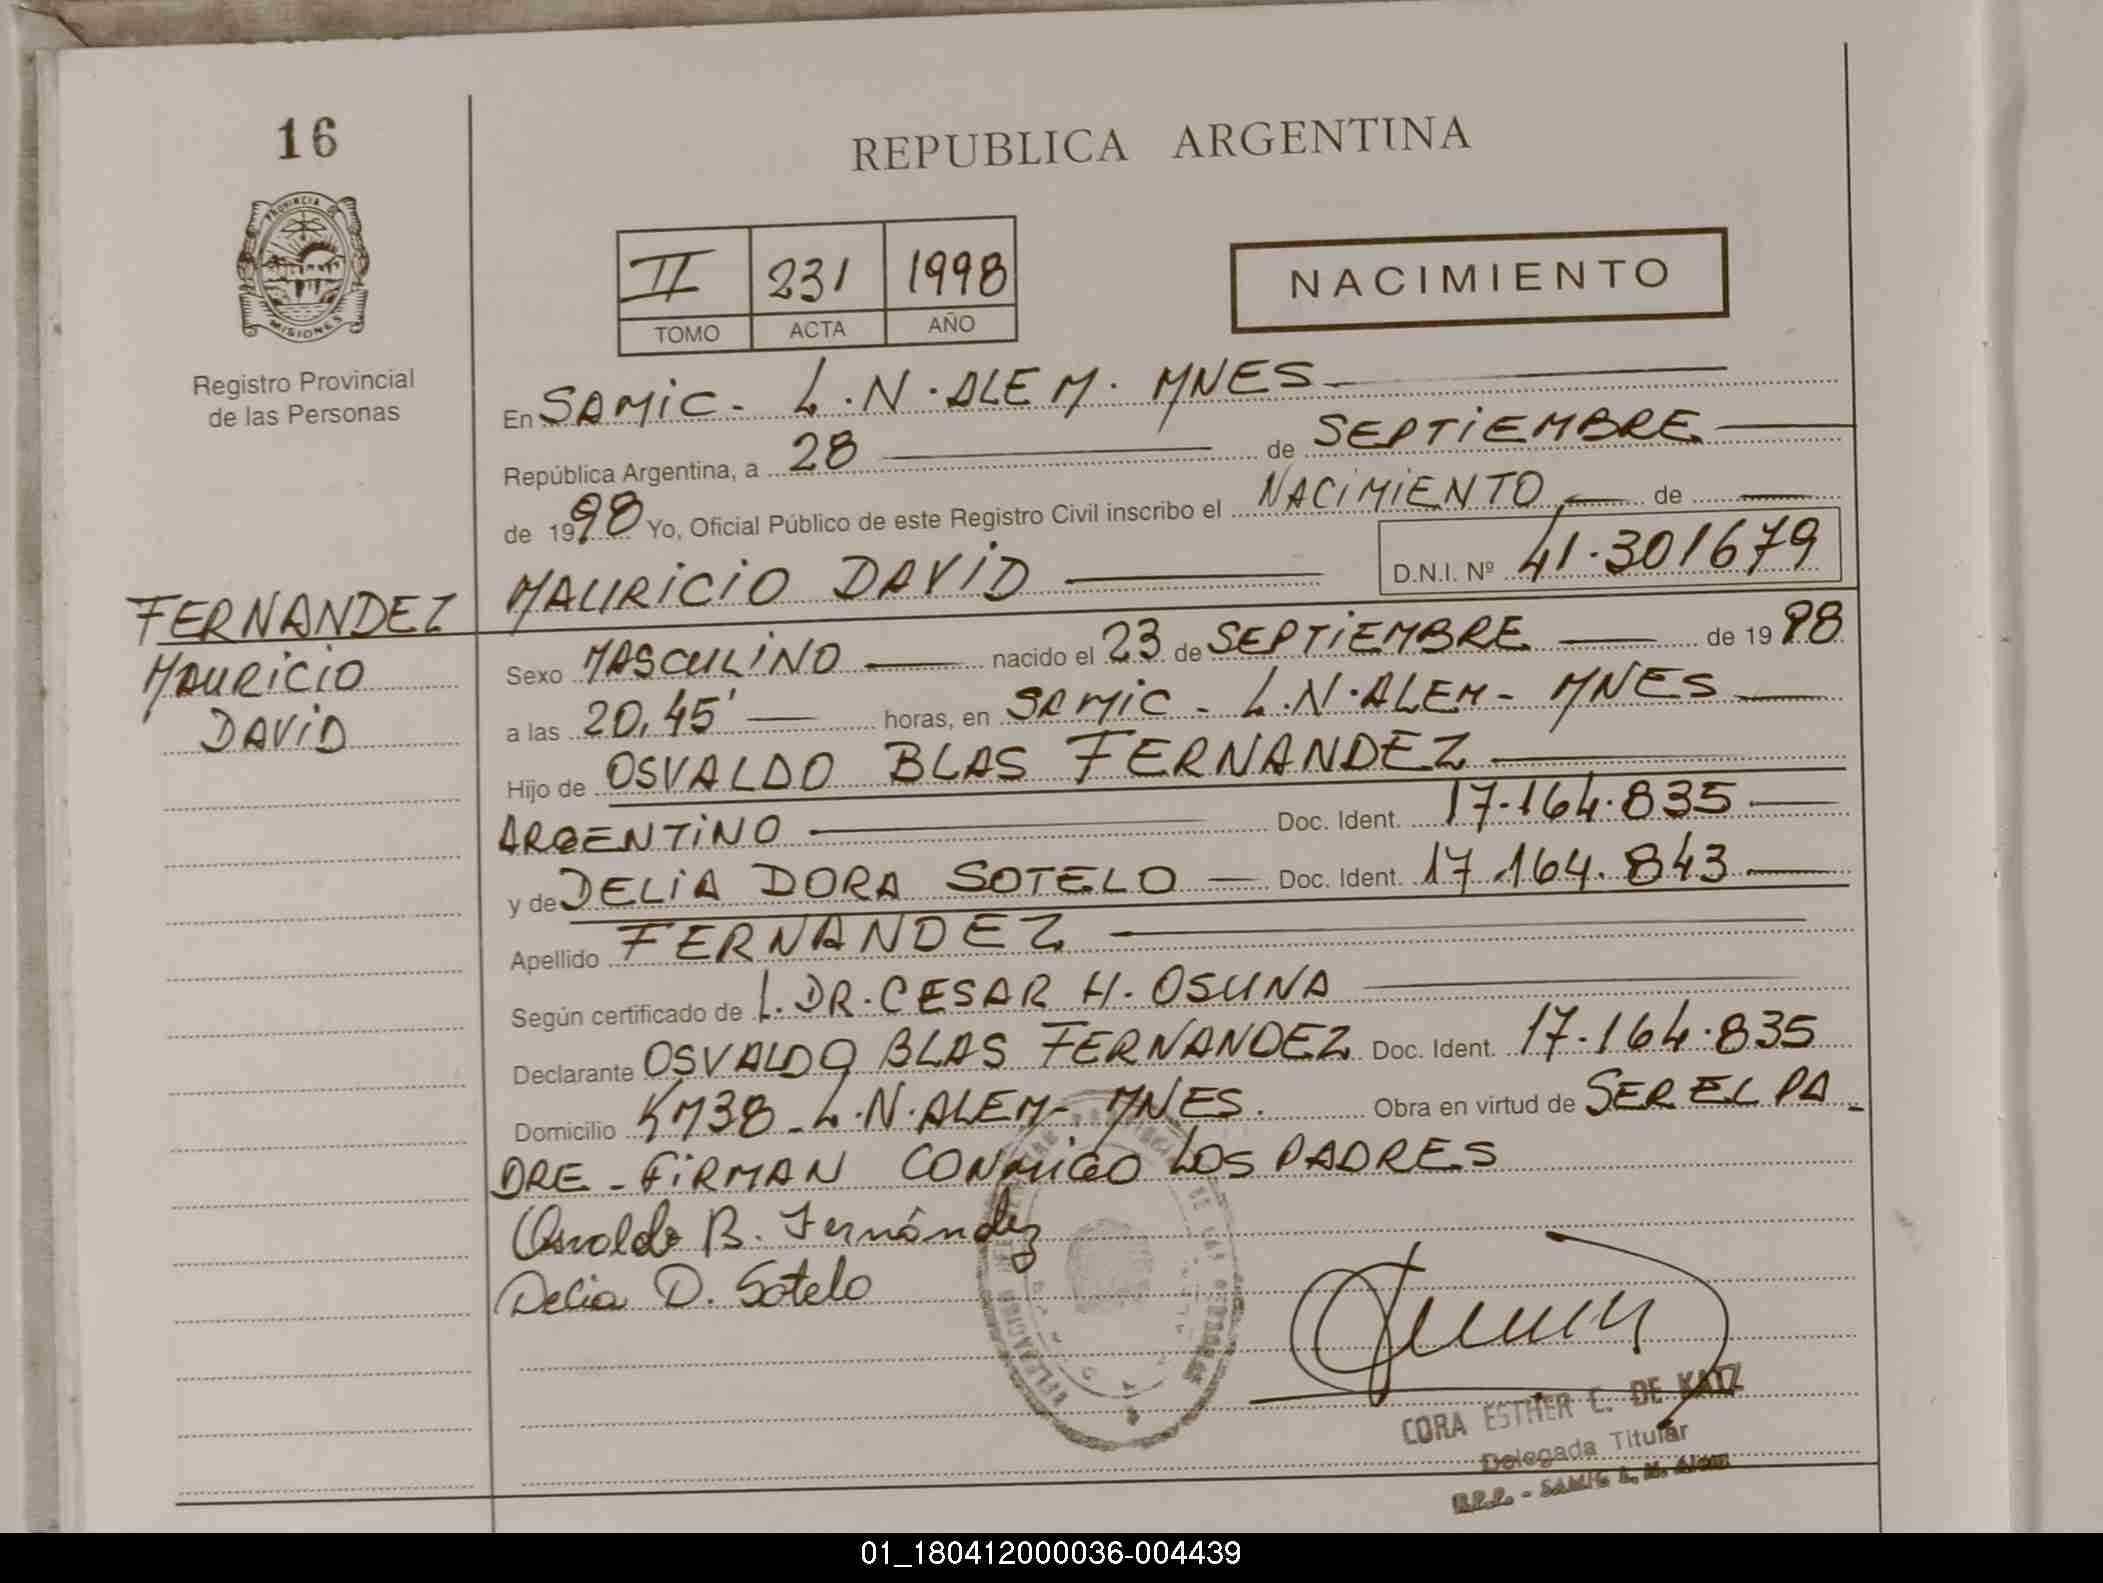 16
REPUBLICA ARGENTINA
PROVINCIA DE
MISIONES
Registro Provincial
de las Personas
II 231 1998
TOMO ACTA AÑO
NACIMIENTO
En SAMIC - L.N. ALEM. MNES
República Argentina, a 28 de SEPTIEMBRE
de 1998 Yo, Oficial Público de este Registro Civil inscribo el NACIMIENTO de
MAURICIO DAVID D.N.I. Nº 41.301679
FERNANDEZ
MAURICIO
DAVID
Sexo MASCULINO nacido el 23 de SEPTIEMBRE de 1998
a las 20,45' horas, en SAMIC - L.N. ALEM - MNES
Hijo de OSVALDO BLAS FERNANDEZ
ARGENTINO Doc. Ident. 17.164.835
y de DELIA DORA SOTELO Doc. Ident. 17.164.843
Apellido FERNANDEZ
Según certificado de L. DR. CESAR H. OSUNA
Declarante OSVALDO BLAS FERNANDEZ Doc. Ident. 17.164.835
Domicilio KM38 - L.N. ALEM - MNES. Obra en virtud de SER EL PA-
DRE - FIRMAN CONMIGO LOS PADRES
Osvaldo B. Fernández
Delia D. Sotelo
CORA ESTHER C. DE KATZ
Delegada Titular
R.P.P. - SAMIC L. N. Alem
01_180412000036-004439